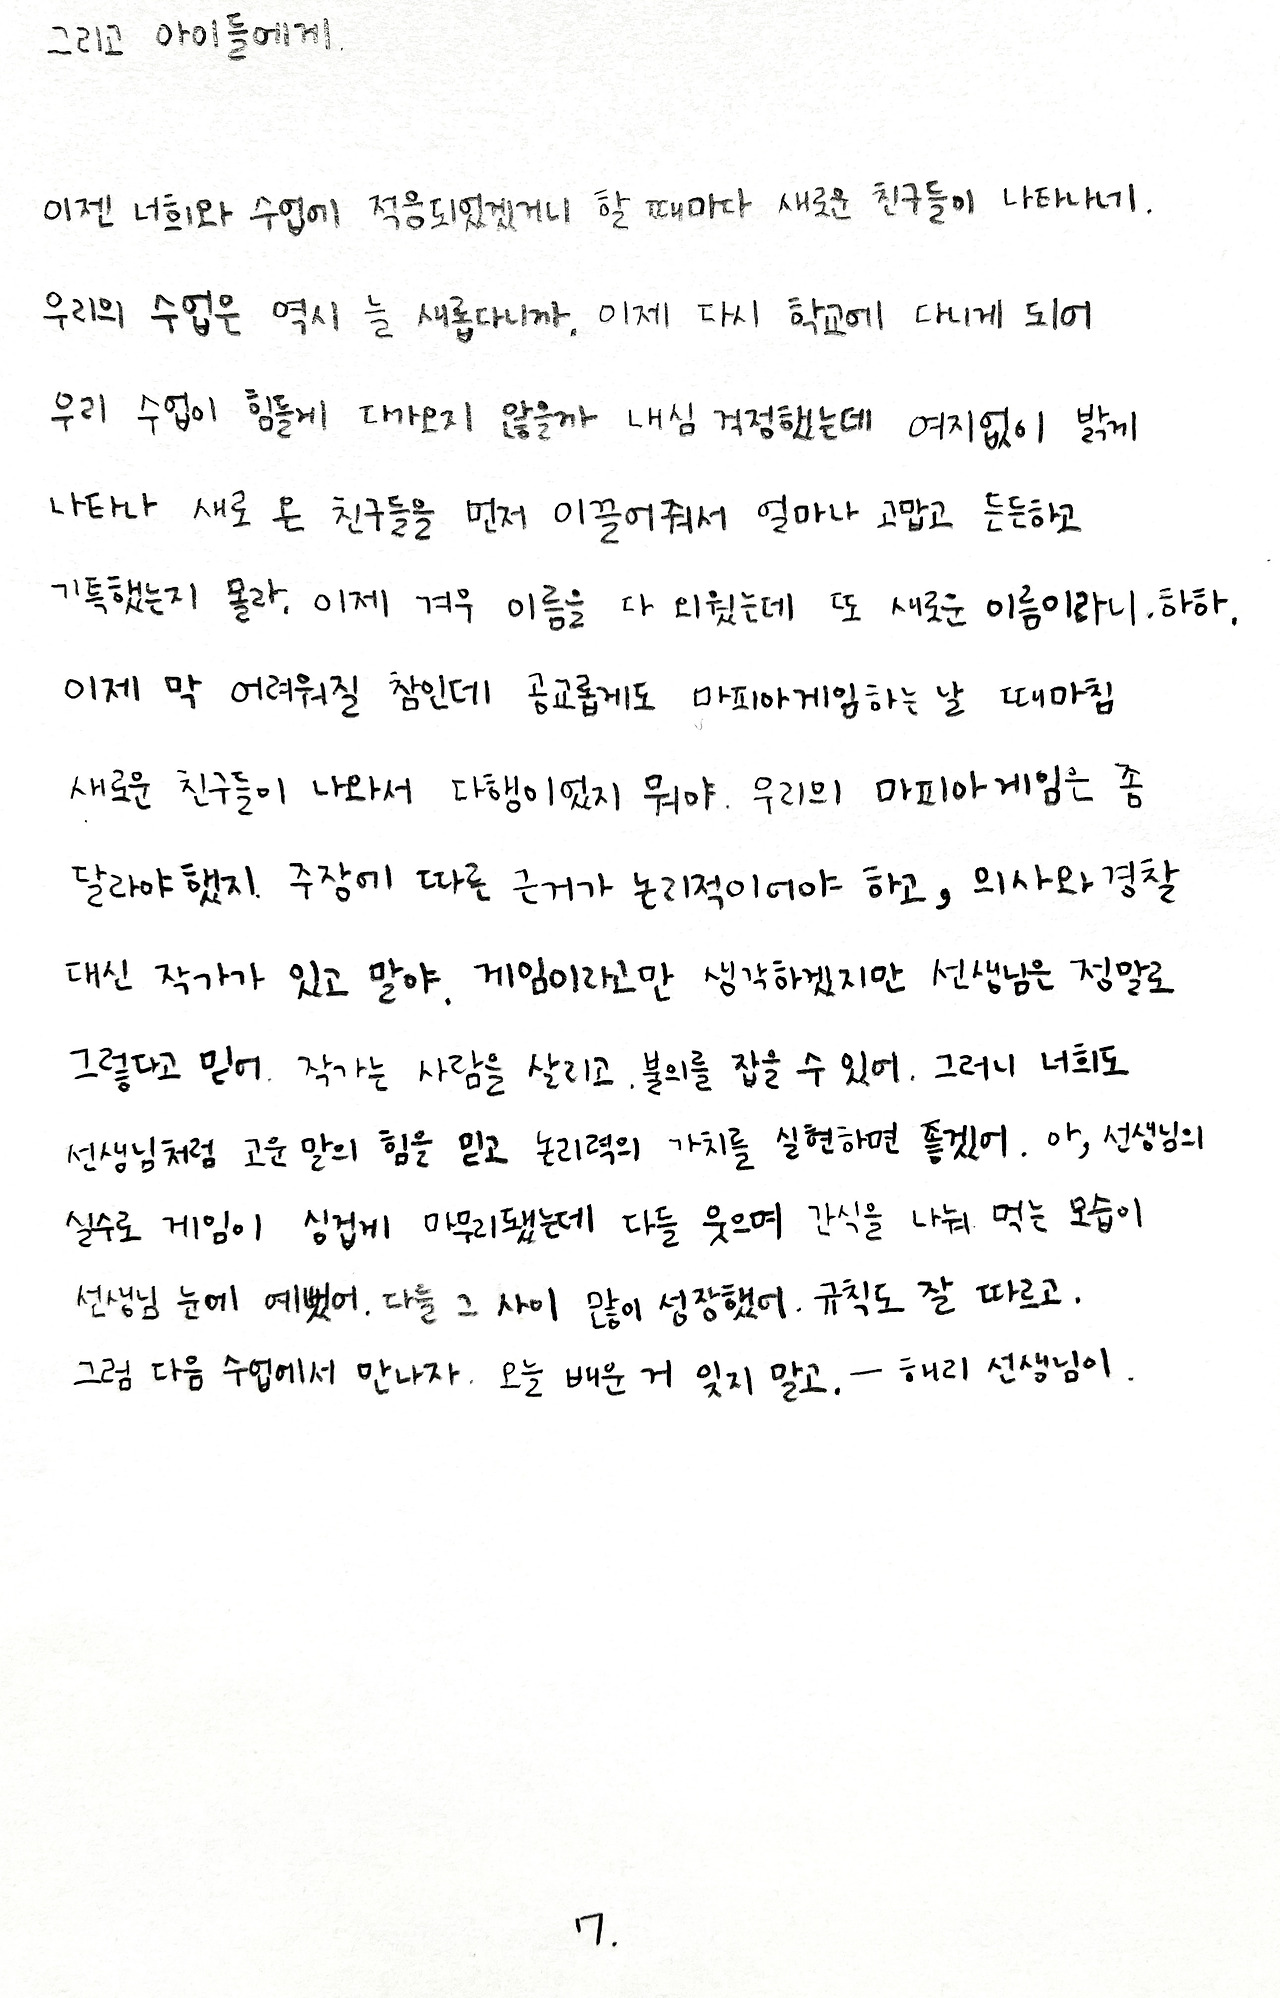 그리고 아이들에게.
이젠 너희와 수업에 적응되었겠거니 할 때마다 새로운 친구들이 나타나네.
우리의 수업은 역시 늘 새롭다니까. 이제 다시 학교에 다니게 되어
우리 수업이 힘들게 다가오지 않을까 내심 걱정했는데 여지없이 밝게
나타나 새로 온 친구들을 먼저 이끌어줘서 얼마나 고맙고 든든하고
기특했는지 몰라. 이제 겨우 이름을 다 외웠는데 또 새로운 이름이라니. 하하.
이제 막 어려워질 참인데 공교롭게도 마피아게임하는 날 때마침
새로운 친구들이 나와서 다행이었지 뭐야. 우리의 마피아게임은 좀
달라야했지. 주장에 따른 근거가 논리적이어야 하고, 의사와 경찰
대신 작가가 있고 말야. 게임이라고만 생각하겠지만 선생님은 정말로
그렇다고 믿어. 작가는 사람을 살리고. 불의를 잡을 수 있어. 그러니 너희도
선생님처럼 고운 말의 힘을 믿고 논리력의 가치를 실현하면 좋겠어. 아, 선생님의
실수로 게임이 싱겁게 마무리됐는데 다들 웃으며 간식을 나눠 먹는 모습이
선생님 눈에 예뻤어. 다들 그 사이 많이 성장했어. 규칙도 잘 따르고.
그럼 다음 수업에서 만나자. 오늘 배운 거 잊지 말고. — 해리 선생님이.
7.